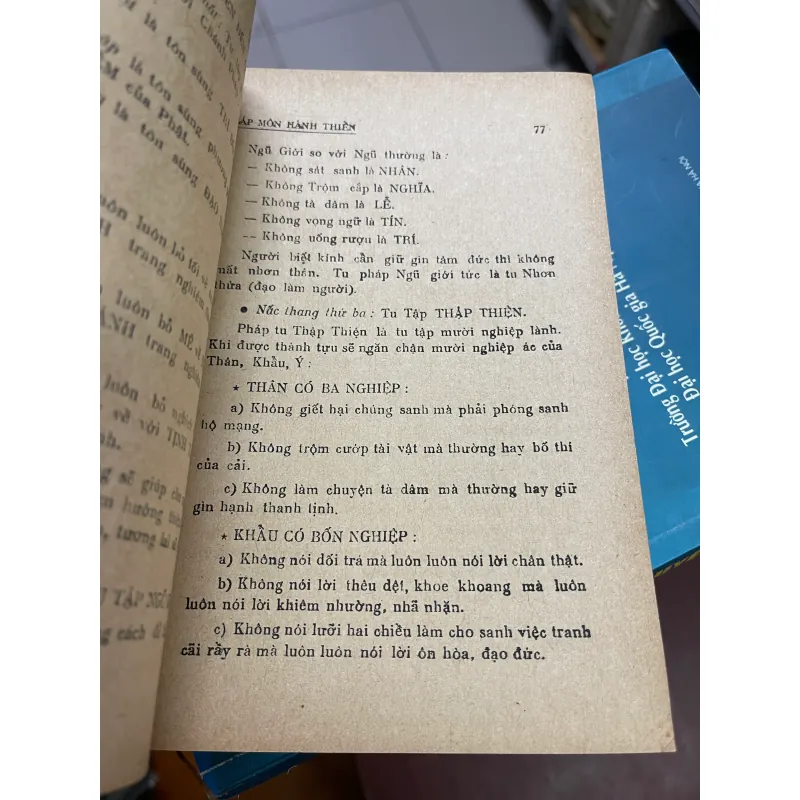 môt : Tu
Chánh
là tôn
là tôn sùng
của Phật.
là tôn sùng ĐẠO
luôn luôn bỏ tối về
trang nghiêm
luôn bỏ MÊ
trang nghiêm
luôn bỏ
về với TỊNH
sẽ giúp cho
hướng
tương lai
TẬP
cách
ÁP MÔN HÀNH THIỀN 77
Ngũ Giới so với Ngũ thường là :
— Không sát sanh là NHÂN.
— Không Trộm cắp là NGHĨA.
— Không tà dâm là LỄ.
— Không vọng ngữ là TÍN.
-- Không uống rượu là TRÍ.
Người biết kính cần giữ gìn tâm đức thì không
mất nhơn thân. Tu pháp Ngũ giới tức là tu Nhơn
thừa (đạo làm người).
● Nấc thang thứ ba : Tu Tập THẬP THIỆN.
Pháp tu Thập Thiện là tu tập mười nghiệp lành.
Khi được thành tựu sẽ ngăn chận mười nghiệp ác của
Thân, Khẩu, Ý :
★ THÂN CÓ BA NGHIỆP :
a) Không giết hại chúng sanh mà phải phóng sanh
hộ mạng.
b) Không trộm cướp tài vật mà thường hay bố thí
của cải.
c) Không làm chuyện tà dâm mà thường hay giữ
gìn hạnh thanh tịnh.
★ KHẨU CÓ BỐN NGHIỆP :
a) Không nói dối trá mà luôn luôn nói lời chân thật.
b) Không nói lời thêu dệt, khoe khoang mà luôn
luôn nói lời khiêm nhường, nhã nhặn.
c) Không nói lưỡi hai chiều làm cho sanh việc tranh
cãi rầy rà mà luôn luôn nói lời ôn hòa, đạo đức.
Trường Đại học
Đại học Quốc gia Hà
HÀ NỘI